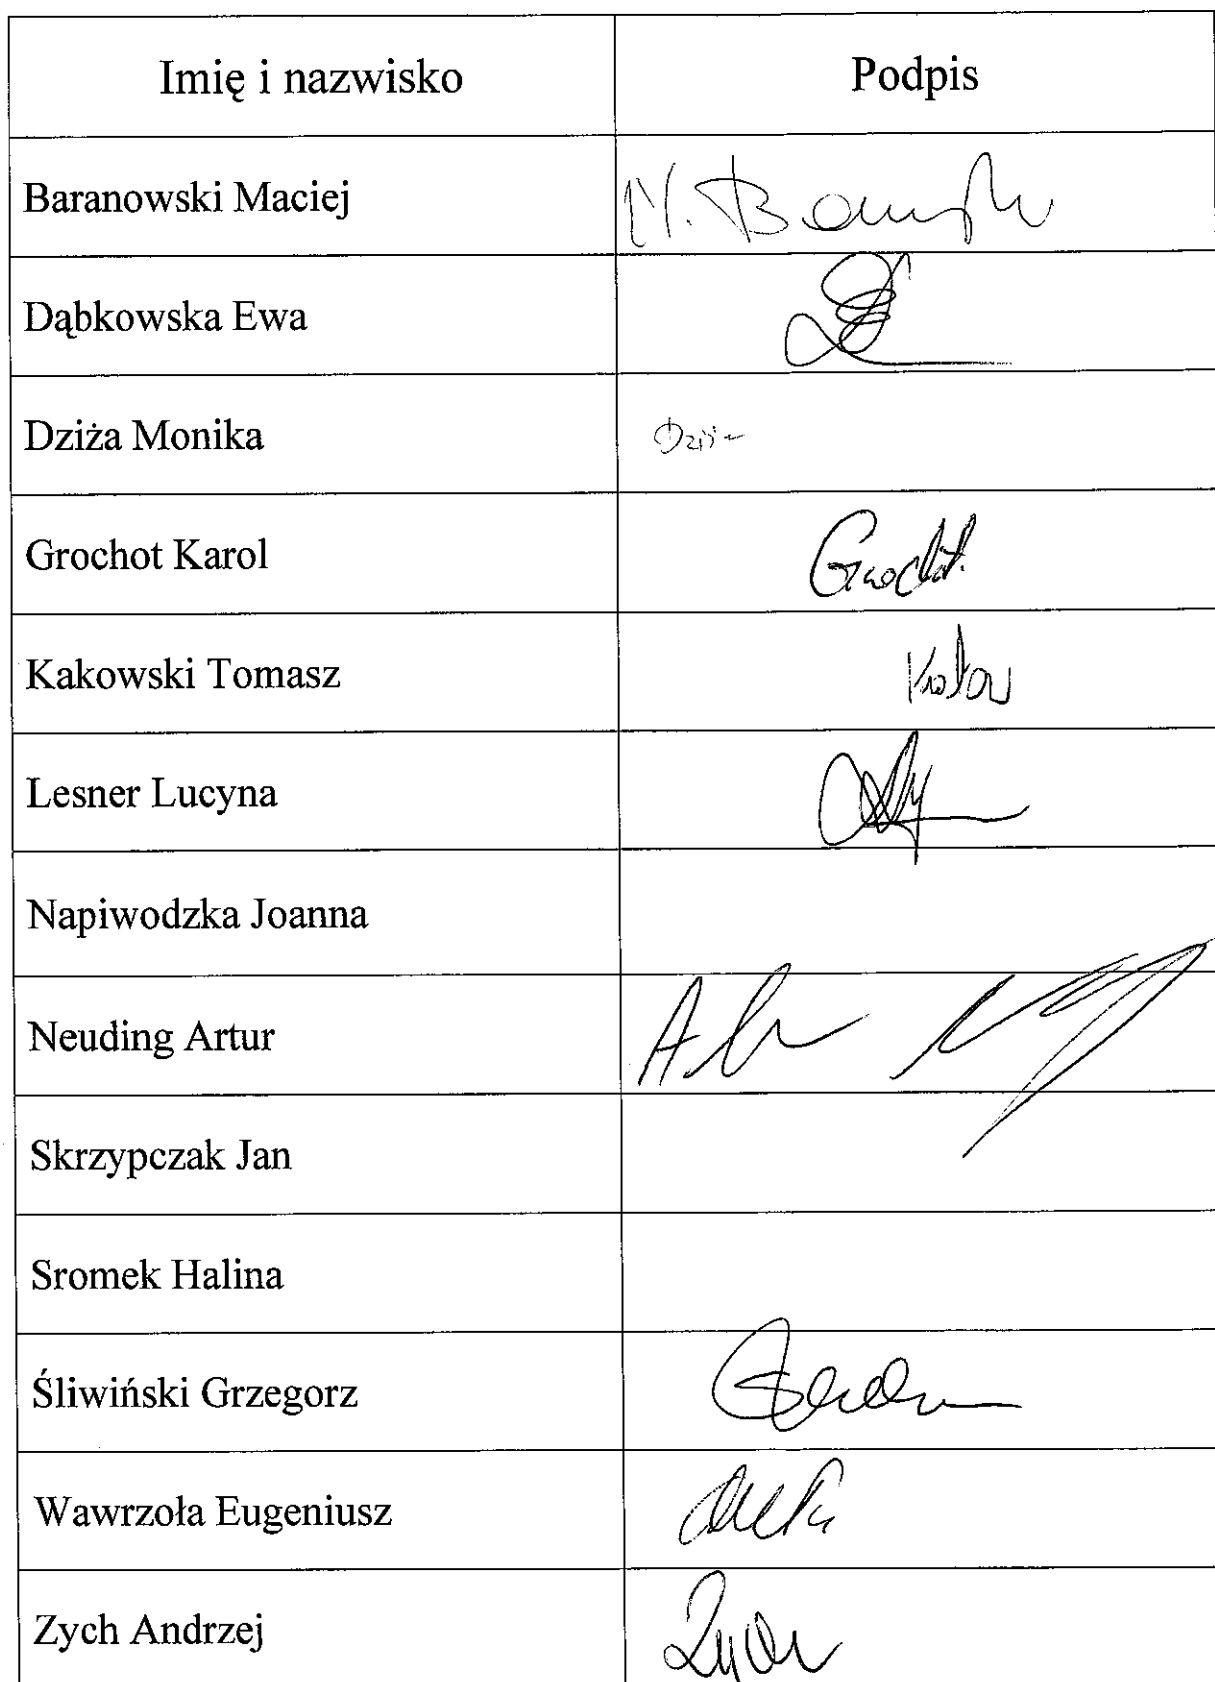 Imię i nazwisko Podpis
Baranowski Maciej M. Baranowski
Dąbkowska Ewa
Dziża Monika
Grochot Karol Grochot
Kakowski Tomasz
Lesner Lucyna
Napiwodzka Joanna
Neuding Artur
Skrzypczak Jan
Sromek Halina
Śliwiński Grzegorz
Wawrzoła Eugeniusz
Zych Andrzej Zych